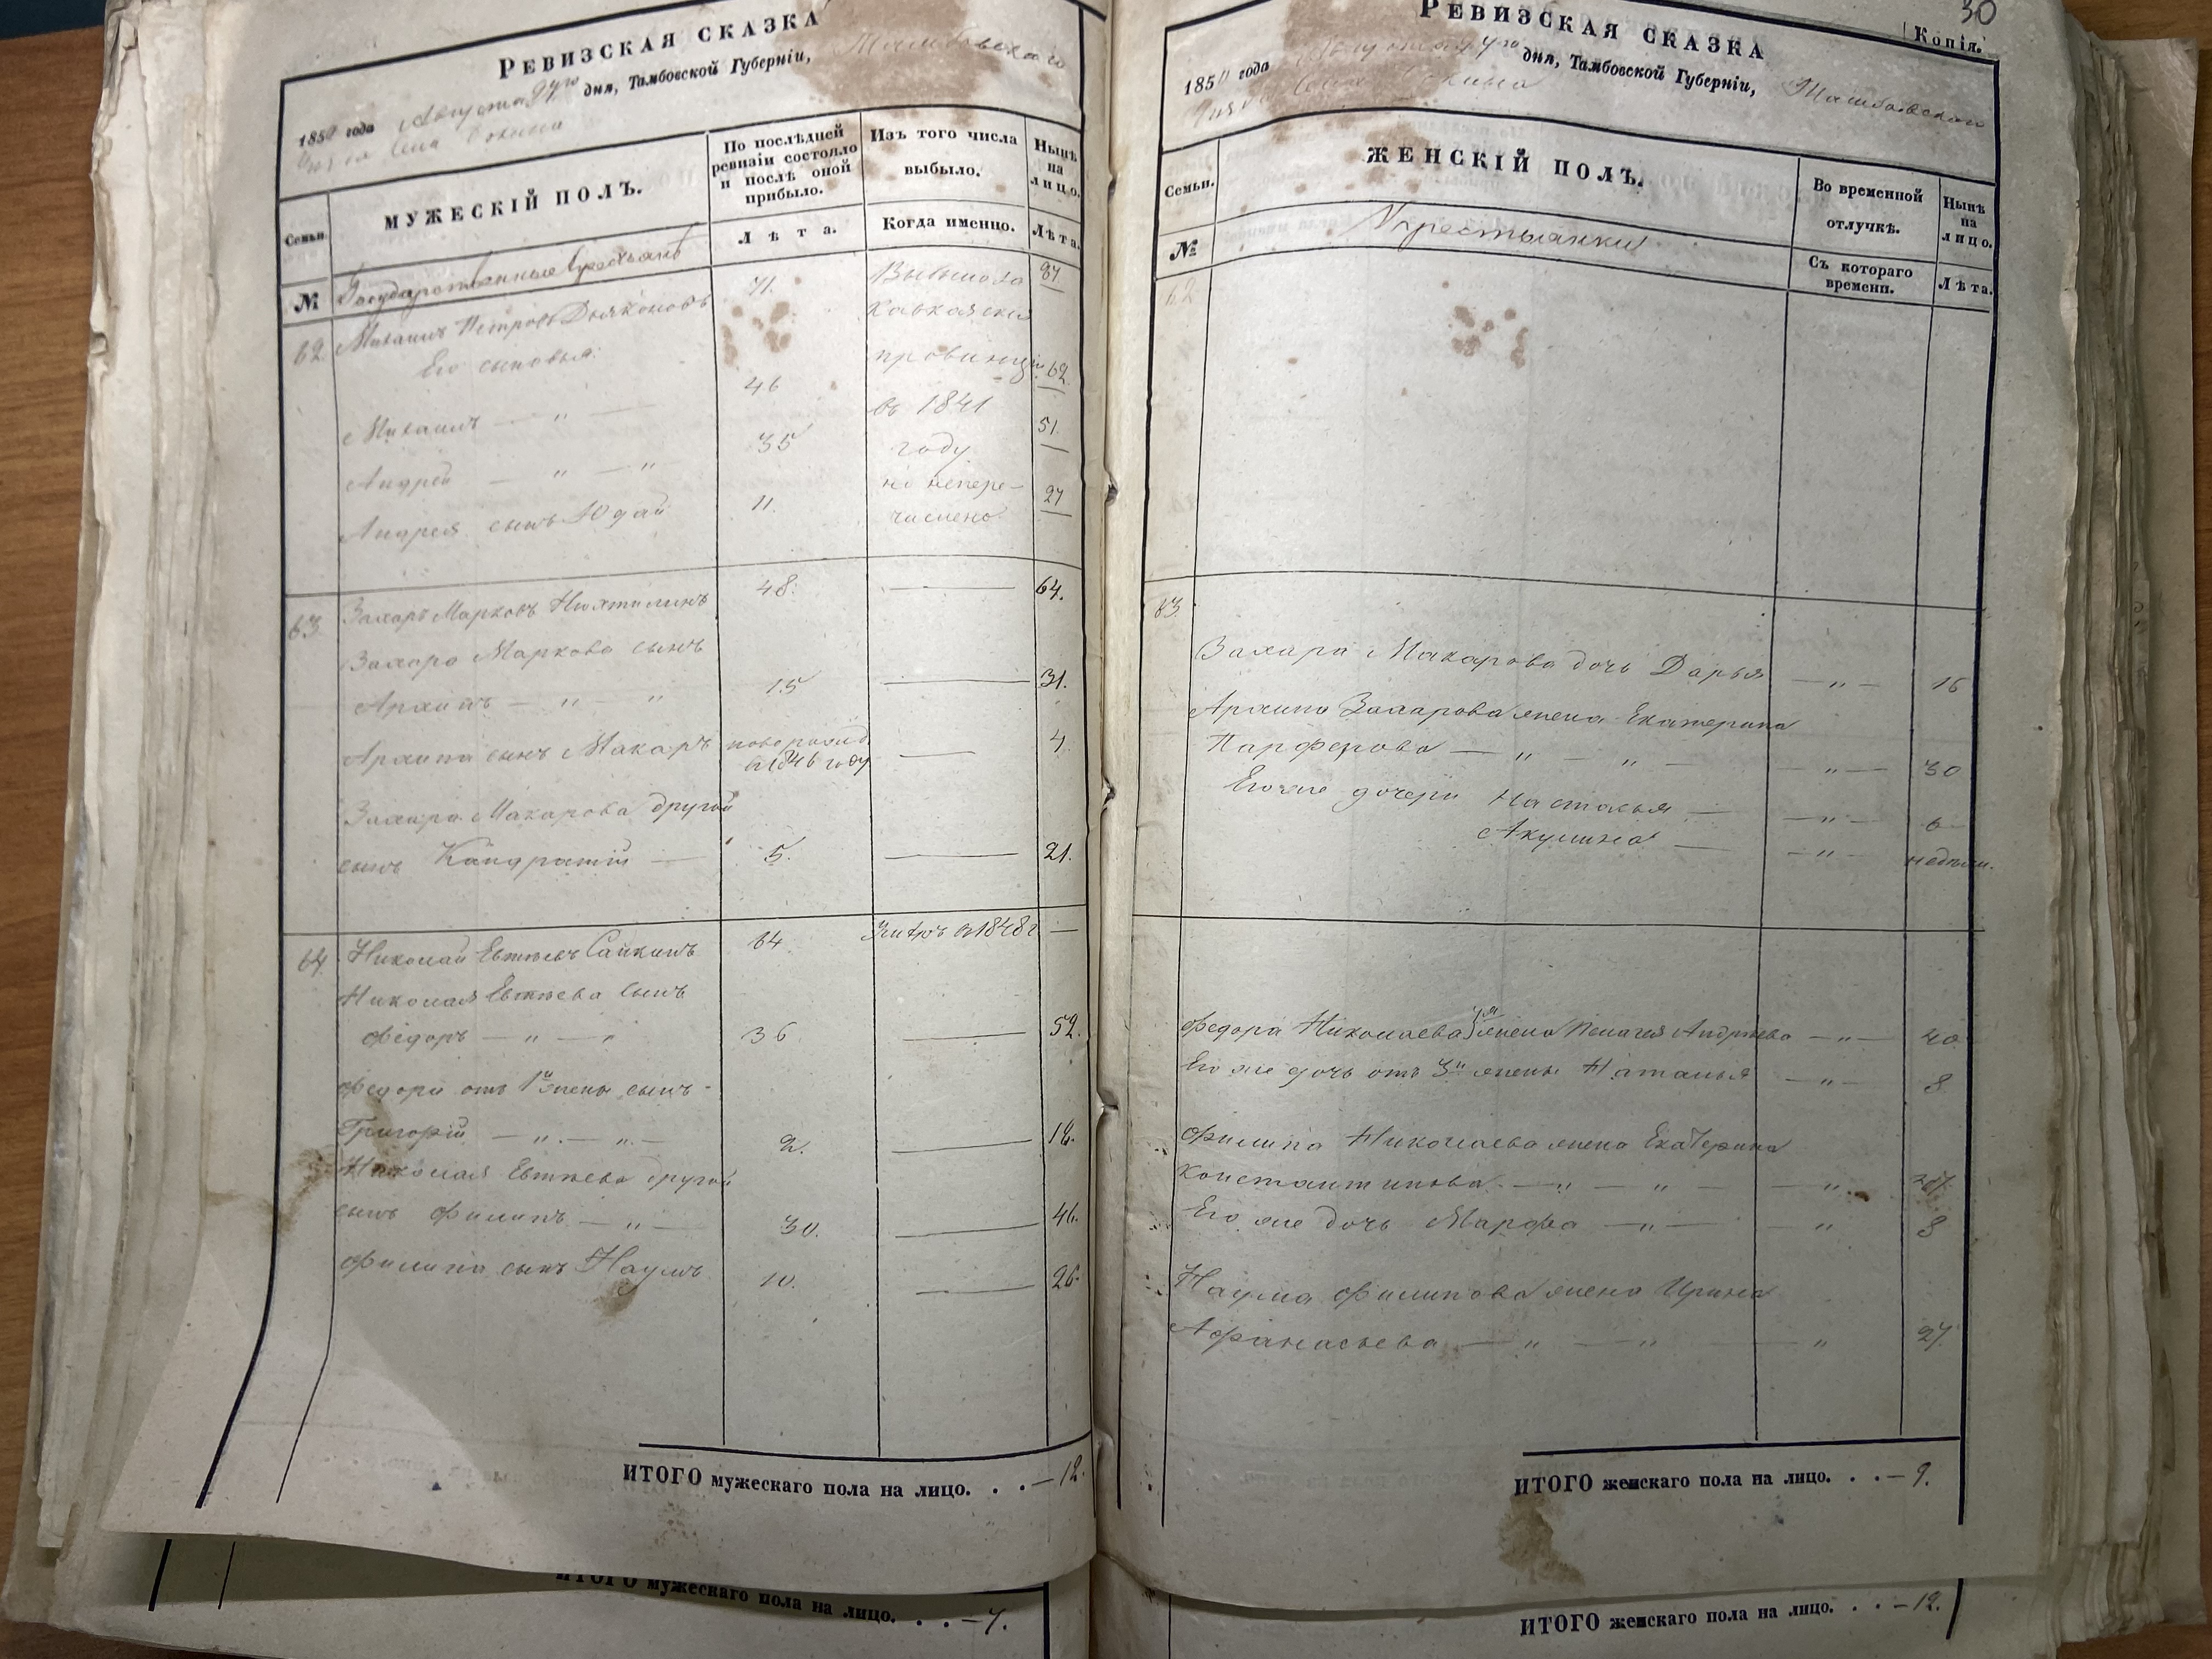 РЕВИЗСКАЯ СКАЗКА
1850 года Августа дня, Тамбовской Губерніи, Тамбовского
села
Семьи.
МУЖЕСКІЙ ПОЛЪ.
По послѣдней ревизіи состояло и послѣ оной прибыло.
Изъ того числа выбыло.
Нынѣ на лицо.
№
Государственные Крестьяне
Лѣта.
Когда именно.
Лѣта.
62. Михаилъ Петровъ Дьяконовъ 71. Выбыло
Кавказскія
Его сыновья:
провинціи
Михаилъ — " — 46 въ 1841 62
Андрей — " — " 35 году 51.
но непере-
Андрея сынъ 11. числено 27
63. Захаръ Марковъ 48. — 64.
Захара Маркова сынъ
Архипъ — " — " 15 — 31.
Архипа сынъ Макаръ новорожд. — 4.
в 1846 году
Захара Макарова другой
сынъ Кандратій — 5. — 21.
64. Николай Евтѣевъ Сайкинъ 64. Умеръ в 1848 г. —
Николая Евтѣева сынъ
Федоръ — " — " 36 — 52.
Федора отъ 1й жены сынъ
Григорій — " — " — 2. — 18.
Николая Евтѣева другой
сынъ Филипъ — " — 30. — 46.
Филипа сынъ Наумъ 10. — 26.
ИТОГО мужескаго пола на лицо. . . — 12.
ИТОГО мужескаго пола на лицо. . . — 7.
30
Копія.
РЕВИЗСКАЯ СКАЗКА
1850 года дня, Тамбовской Губерніи, Тамбовской
Семьи.
ЖЕНСКІЙ ПОЛЪ.
Во временной отлучкѣ.
Нынѣ на лицо.
№
Крестьянки
Съ котораго времени.
Лѣта.
62
63.
Захара Макарова дочь Дарья — " — 16
Архипа Захарова жена Екатерина
Парферова — " — " — — " — 30
Его же дочери Настасья — — " — 6
Акулина — — " — недѣли.
Федора Николаева 3я жена Пелагея Андрѣева — " — 40.
Его же дочь отъ 3й жены Наталья — " — 8
Филипа Николаева жена Екатерина
Константинова — " — " — — "
Его же дочь Марфа — " — " 8
Наума Филипова жена Ирина
Афанасьева — " — " — " 27.
ИТОГО женскаго пола на лицо. . . — 9.
ИТОГО женскаго пола на лицо. . . — 12.